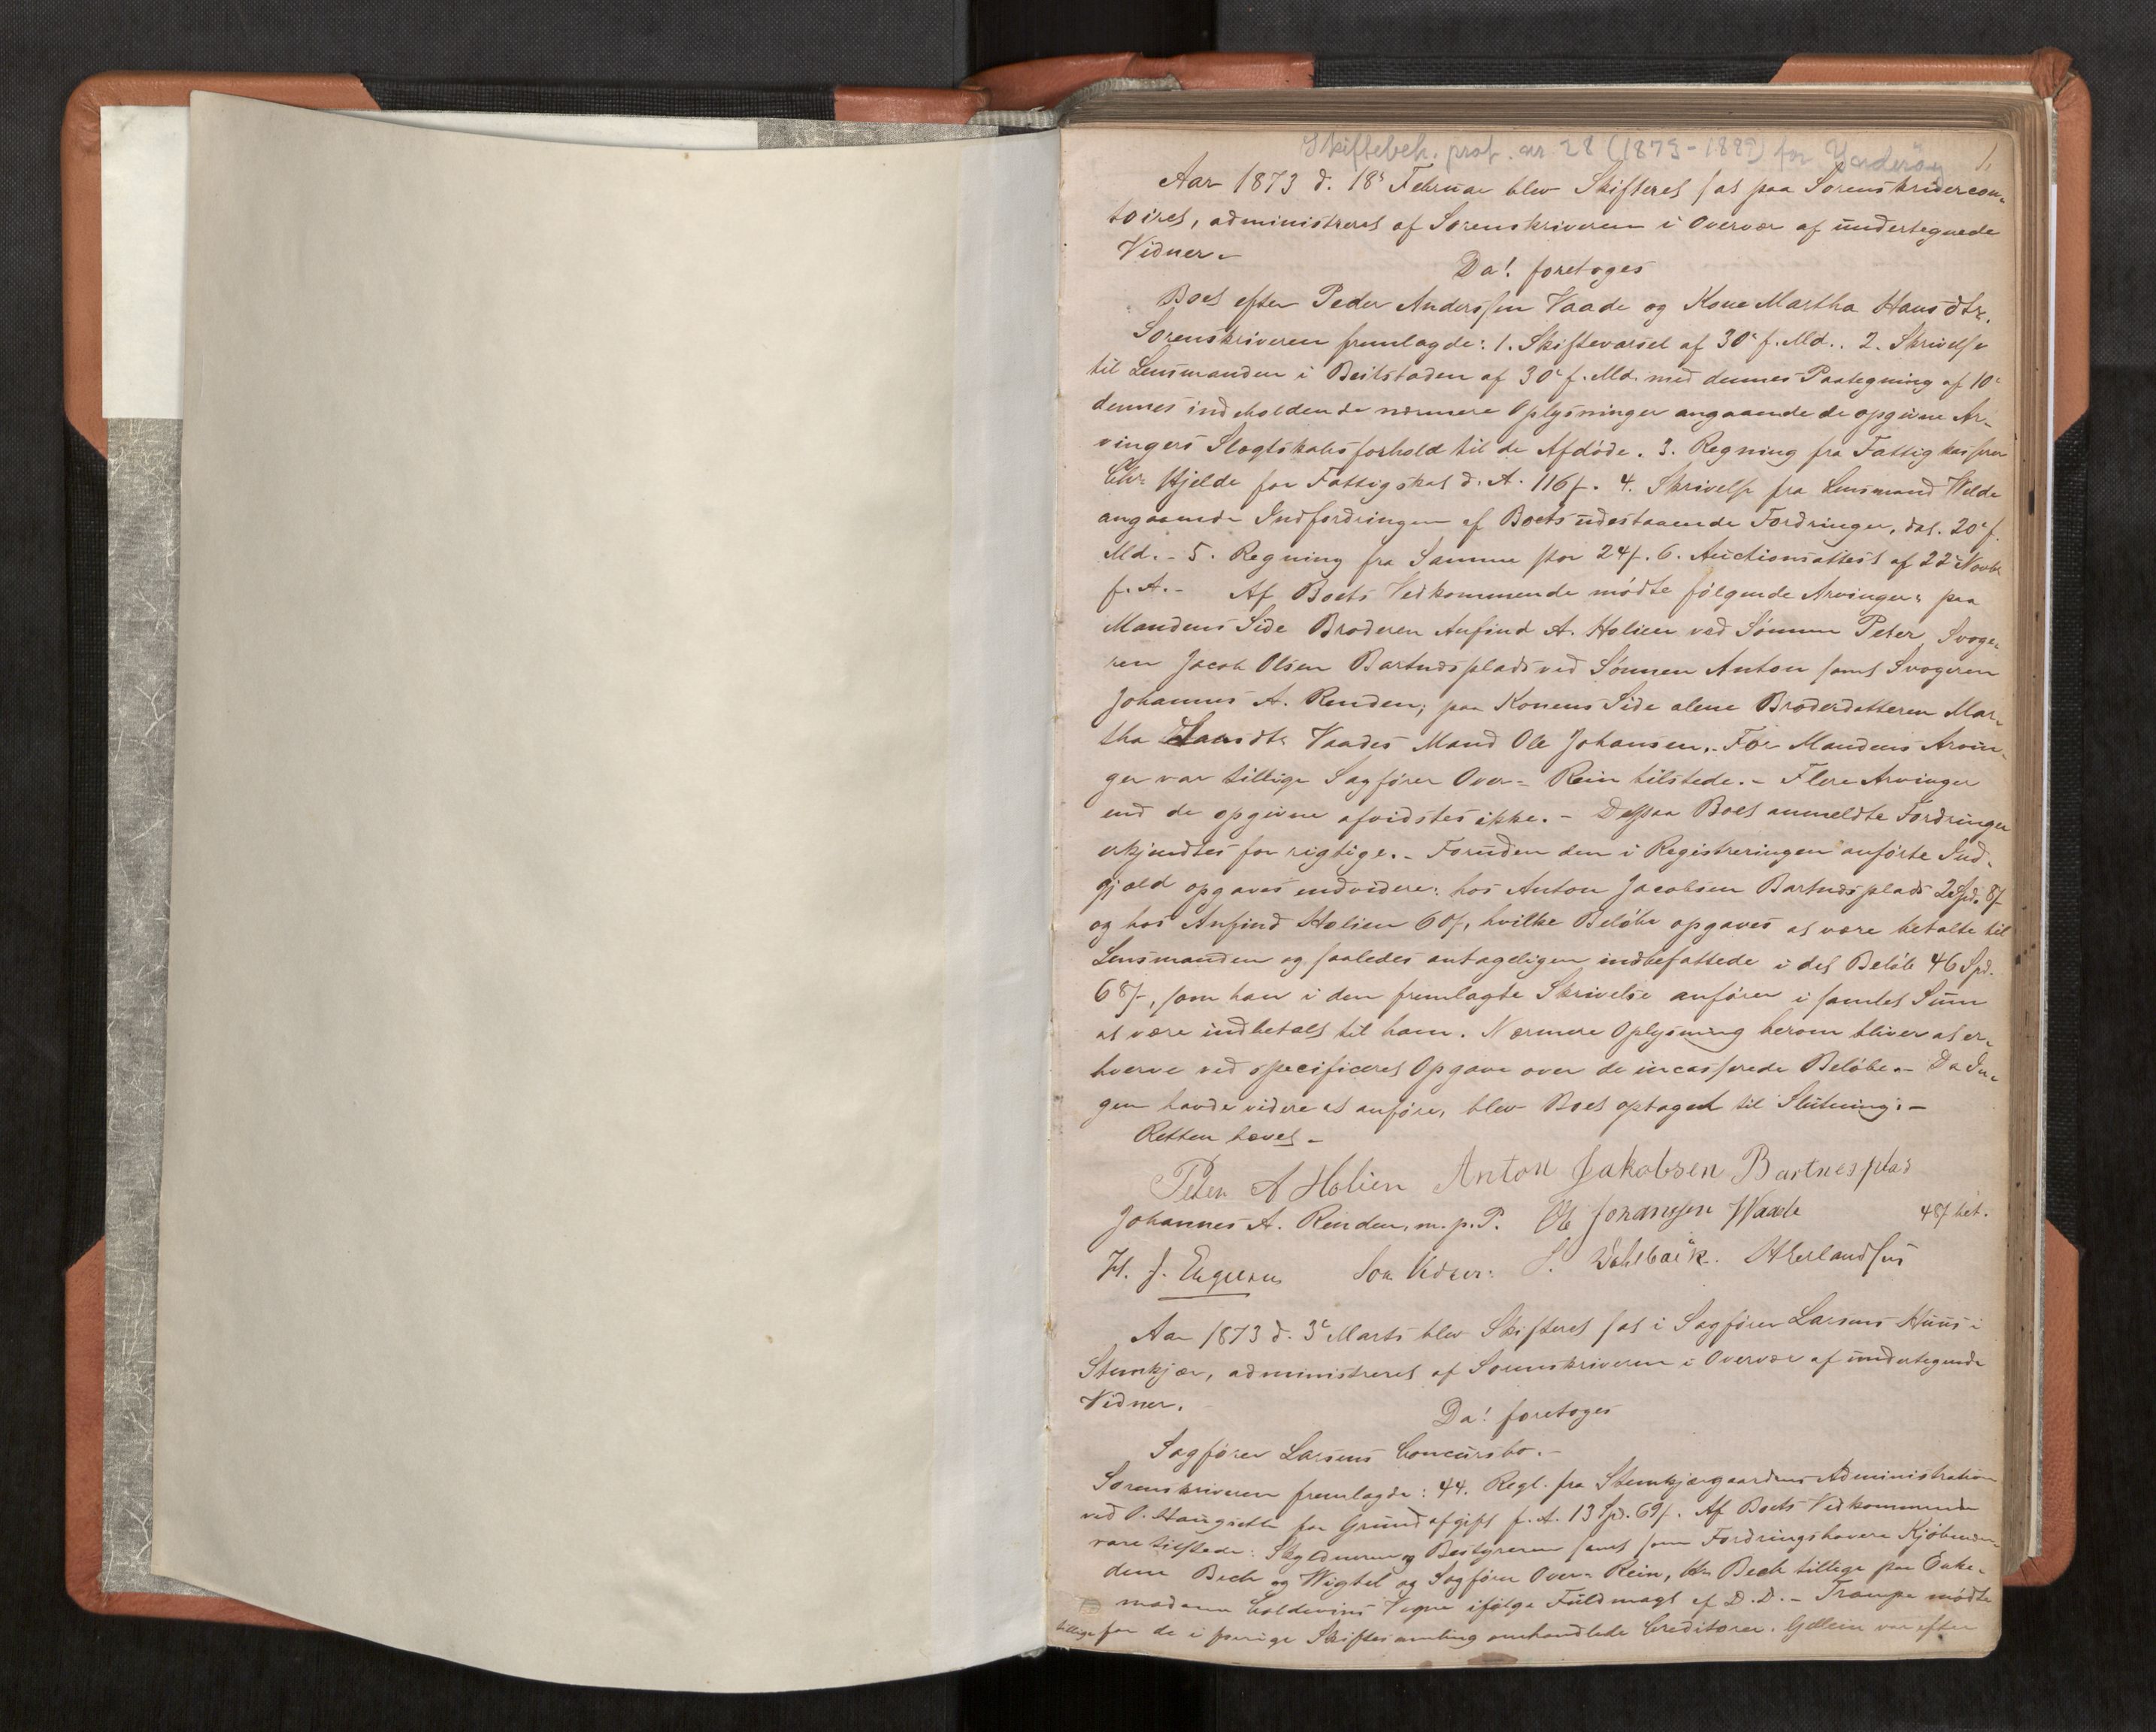 Skiftebeh. prot. nr 28 (1873-1889) for Ynderøy
1.
Aar 1873 d. 18de Februar blev Skifteret sat paa Sorenskrivercon-
toiret, administreret af Sorenskriveren i Overvær af undertegnede
Vidner.-
Da! foretoges
Boet efter Peder Anderssen Vaade og Kone Martha Hansdtr.
Sorenskriveren fremlagde: 1. Skiftevarsel af 30te f. Md.. 2. Skrivelse
til Lensmanden i Beitstaden af 30te f. Md. med dennes Paategning af 10de
dennes indeholdende nærmere Oplysninger angaaende de opgivne Ar-
vingers Slægtskabsforhold til de Afdøde. 3. Regning fra Fattigkasserer
Chr. Hjelde for Fattigskat d. A. 116 f. 4. Skrivelse fra Lensmand Welde
angaaende Indfordringen af Boets udestaaende Fordringer, dat. 20de f.
Md. - 5. Regning fra Samme stor 24 f. 6. Auctionsattest af 22de Novbr
f. A. - Af Boets Vedkommende mødte følgende Arvinger: paa
Mandens Side Broderen Anfind A. Holien ved Sønnen Peter, Svoge-
ren Jacob Olsen Bartnæsplads ved Sønnen Anton samt Svogeren
Johannes A. Renden; paa Konens Side alene Broderdatteren Mar-
tha Hansdtr Vaades Mand Ole Johansen. - For Mandens Arvin-
ger var tillige Sagfører Over-Rein tilstede. - Flere Arvinger
end de opgivne afvidstes ikke. - De paa Boet anmeldte Fordringer
erkjendtes for rigtige. - Foruden den i Registreringen anførte Ind-
gjæld opgaves endvidere: hos Anton Jacobsen Bartnæsplads 2 Spd. 8 f
og hos Anfind Holien 60 f, hvilke Beløbe opgaves at være betalte til
Lensmanden og saaledes antageligen indbefattede i det Beløb 46 Spd.
68 f, som han i den fremlagte Skrivelse anfører i samlet Sum
at være indbetalt til ham. Nærmere Oplysning herom bliver at er-
hverve ved specificeret Opgave over de incasserede Beløbe. - Da In-
gen havde videre at anføre, blev Boet optaget til Slutning. -
Retten hævet. -
Peter A Holien Anton Jakobsen Bartnesplad
Johannes A. Renden, m. p. P. Ole Johansen Waade 48 f bet.
Som Vidner: Wahlbäck.
Aar 1873 d. 3de Marts blev Skifteret sat i Sagfører Larsens Huus i
Stenkjær, administreret af Sorenskriveren i Overvær af undertegnede
Vidner.
Da! foretoges
Sagfører Larsens Concursbo. -
Sorenskriveren fremlagde: 44. Regl. fra Stenkjærgaardens Administration
ved for Grundafgift f. A. 13 Spd. 69 f. Af Boets Vedkommende
vare tilstede: Skyldneren og Bestyreren samt som Fordringshavere Kjøbmæn-
dene Bech og Wigtel og Sagfører Over-Rein, Hr. Bech tillige paa Enke-
madame Coldevins Vegne ifølge Fuldmagt af D. D. - Trampe mødte
tillige for de i forrige Skiftesamling omhandlede Creditorer. var efter